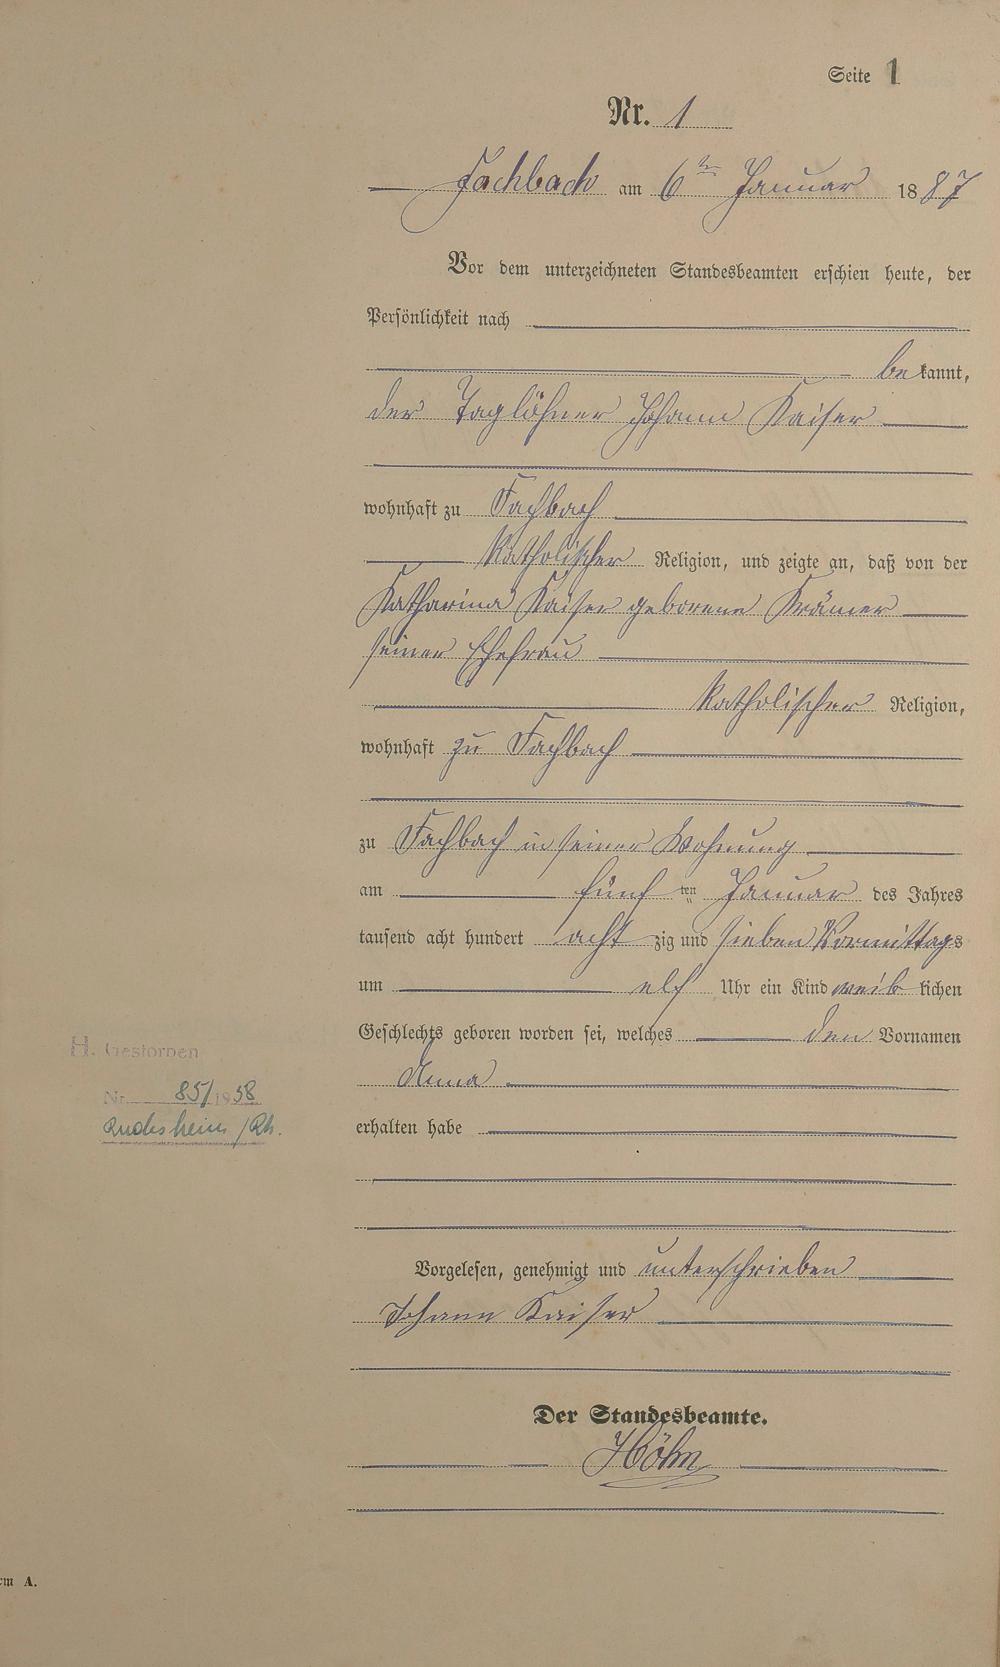 Seite 1
Nr. 1
Fachbach am 6ten Januar 1887
Vor dem unterzeichneten Standesbeamten erschien heute, der
Persönlichkeit nach
bekannt,
der Taglöhner Johann Kaiser
wohnhaft zu Fachbach
katholischer Religion, und zeigte an, daß von der
Katharina Kaiser geborene Krämer
seiner Ehefrau
katholischer Religion,
wohnhaft zu Fachbach
zu Fachbach in seiner Wohnung
am fünften Januar des Jahres
tausend acht hundert achtzig und sieben Vormittags
um elf Uhr ein Kind weiblichen
Geschlechts geboren worden sei, welches den Vornamen
Anna
erhalten habe
H. Gestorben
Nr. 85/1958
Rüdesheim/Rh.
Vorgelesen, genehmigt und unterschrieben
Johann Kaiser
Der Standesbeamte.
Höhn
m A.